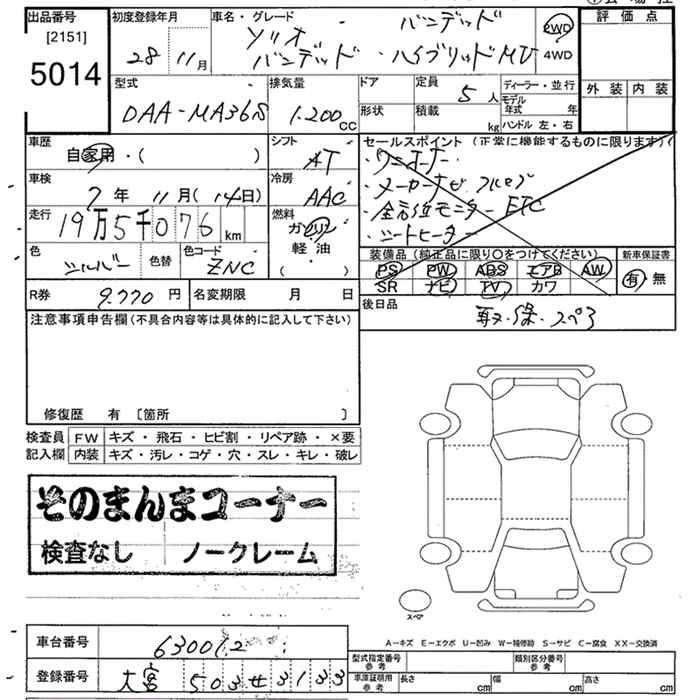 出品番号
[2151]
5014
初度登録年月
28 11 月
車名・グレード
バンデッド
ソリオ
バンデッド・ハイブリッドMV
2WD
4WD
評価点
外装 内装
型式
DAA-MA36S
排気量
1.200 CC
ドア
形状
定員
5 人
積載
kg
ディーラー・並行
モデル年式 年
ハンドル 左・右
車歴
自家用・( )
シフト
AT
車検
7年 11月(14日)
冷房
AAC
走行
19万5千076 km
燃料
ガソリン
軽油
( )
色
シルバー
色替
色コード
ZNC
セールスポイント(正常に機能するものに限ります)
・ワンオーナー
・メーカーナビ フルセグ
・全方位モニター ETC
・シートヒーター
装備品(純正品に限り○をつけてください)
PS PW ABS エアB AW
SR ナビ TV カワ
新車保証書
有・無
R券 9.770 円
名変期限 月 日
後日品
取・保・スペア
注意事項申告欄(不具合内容等は具体的に記入して下さい)
修復歴 有 [箇所 ]
検査員 FW キズ・飛石・ヒビ割・リペア跡・×要
記入欄 内装 キズ・汚レ・コゲ・穴・スレ・キレ・破レ
そのまんまコーナー
検査なし ノークレーム
スペア
A-キズ E-エクボ U-凹み W-補修跡 S-サビ C-腐食 XX-交換済
車台番号 630012
登録番号 大宮 503 せ 3133
型式指定番号 参考
類別区分番号 参考
車庫証明用 参考
長さ cm
幅 cm
高さ cm